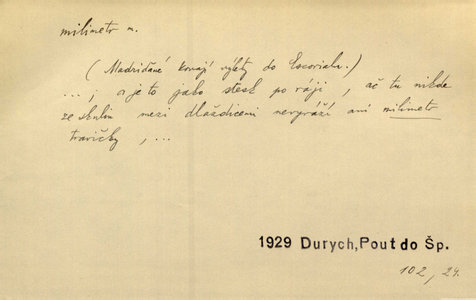 milimetr m.
(Madriďané konají výlety do Escorialu.)
...; a je to jako stesk po ráji, ač tu nikde
ze skulin mezi dlaždicemi nevyráží ani milimetr
travičky, ...
1929 Durych, Pout do Šp.
102, 24.